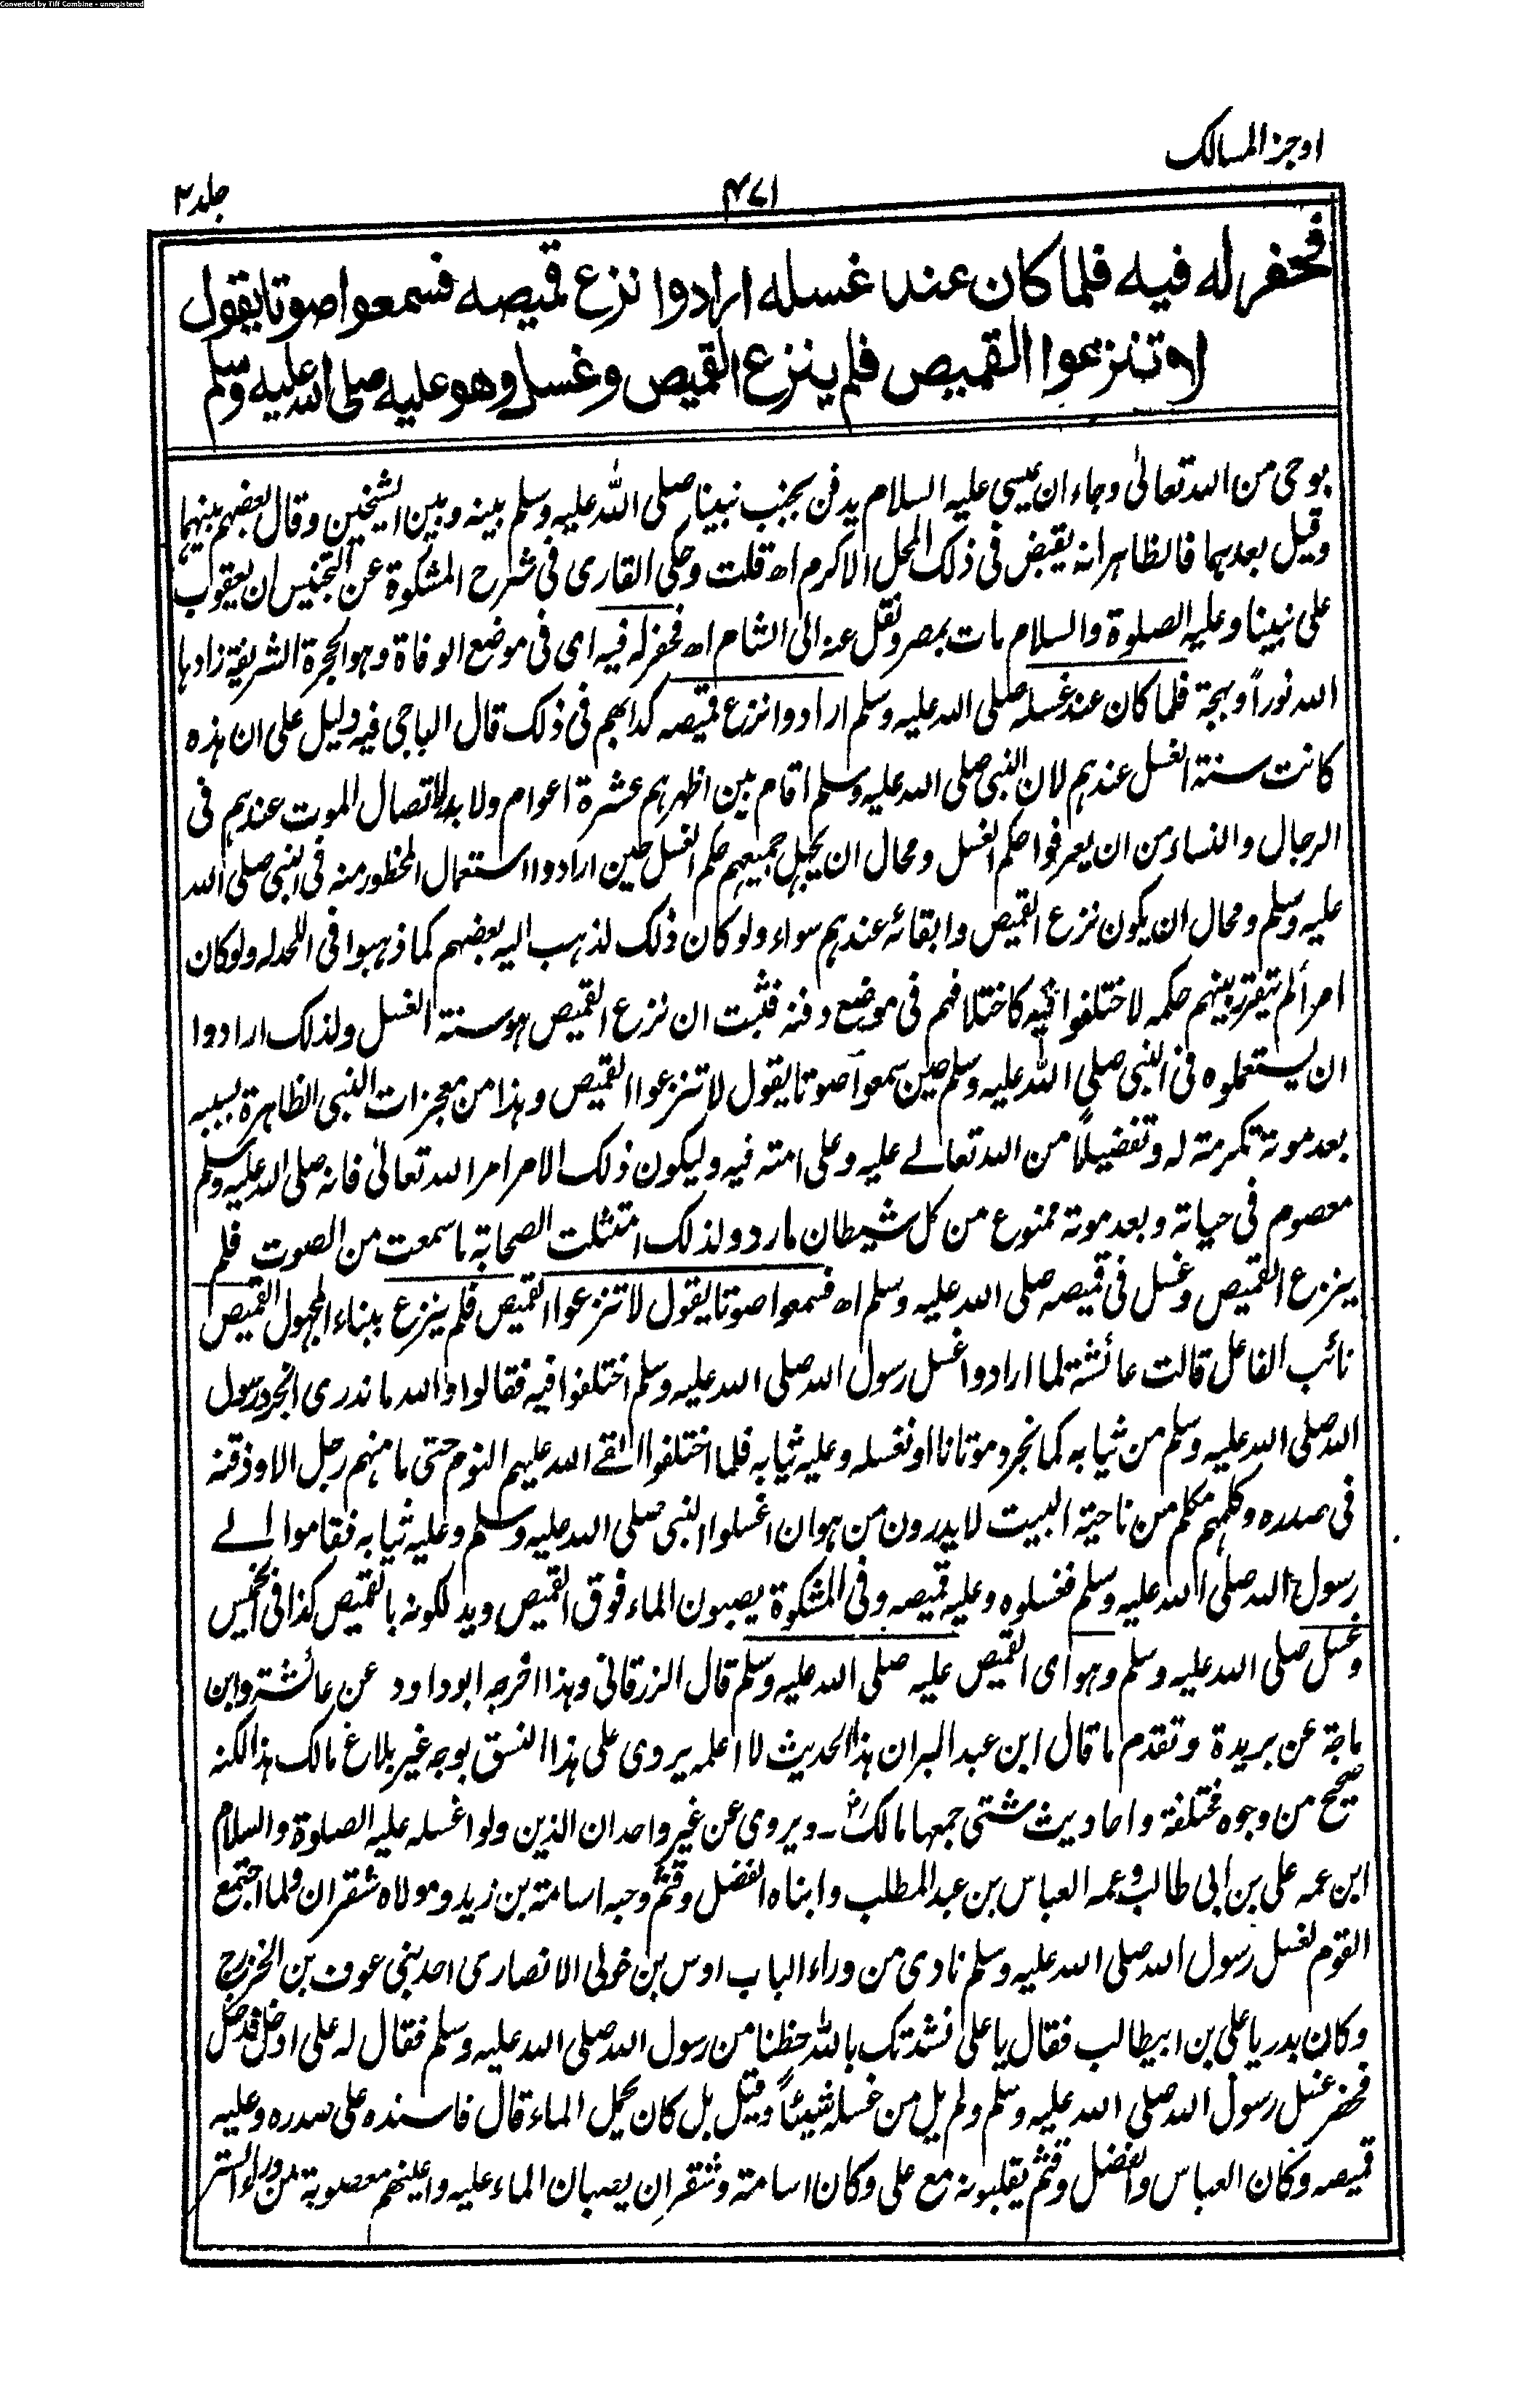 Converted by Tiff Combine - unregistered
اوجز المسالك
۴۷۱
جلد ۲
فحفر له فيه فلما كان عند غسله ارادوا نزع قميصه فسمعوا صوتا يقول
لا تنزعوا القميص فلم ينزع القميص وغسل وهو عليه صلى الله عليه وسلم
بوحى من الله تعالىٰ وجاء ان عيسى عليه السلام يدفن بجنب نبينا صلى الله عليه وسلم بينه وبين الشيخين وقال بعضهم بينهما
وقيل بعدهما فالظاهر انه يقبض فى ذلك المحل الاكرم اھ قلت وحكى القارى فى شرح المشكوة عن التجنيس ان يعقوب
على نبينا وعليه الصلوة والسلام مات بمصر ونقل عنه الى الشام اھ فحفر له فيه اى فى موضع الوفاة وهو الحجرة الشريفة زادها
الله نوراً وبهجة فلما كان عند غسله صلى الله عليه وسلم ارادوا نزع قميصه كدابهم فى ذلك قال الباجى فيه دليل على ان هذه
كانت سنة الغسل عندهم لان النبى صلى الله عليه وسلم اقام بين اظهرهم عشرة اعوام ولا بد لاتصال الموت عندهم فى
الرجال والنساء من ان يعرفوا حكم الغسل ومحال ان يجهل جميعهم حكم الغسل حين ارادوا استعمال المحظور منه فى النبى صلى الله
عليه وسلم ومحال ان يكون نزع القميص وابقائه عندهم سواء ولو كان ذلك لذهب اليه بعضهم كما ذهبوا فى اللحد له ولو كان
امراً لم يتقرر بينهم حكمه لاختلفوا فيه كاختلافهم فى موضع دفنه فثبت ان نزع القميص هو سنة الغسل ولذلك ارادوا
ان يستعملوه فى النبى صلى الله عليه وسلم حين سمعوا صوتا يقول لا تنزعوا القميص وهذا من معجزات النبى الظاهرة بسببه
بعد موتة تكرمة له وتفضيلاً من الله تعالے عليه وعلى امته فيه وليكون ذلك الامر امر الله تعالىٰ فانه صلى الله عليه وسلم
معصوم فى حياته وبعد موته ممنوع من كل شيطان مارد ولذلك امتثلت الصحابة ما سمعت من الصوت فلم
ينزع القميص وغسل فى قميصه صلى الله عليه وسلم اھ فسمعوا صوتا يقول لا تنزعوا القميص فلم ينزع ببناء المجهول القميص
نائب الفاعل قالت عائشة لما ارادوا غسل رسول الله صلى الله عليه وسلم اختلفوا فيه فقالوا والله ما ندرى انجرد رسول
الله صلى الله عليه وسلم من ثيابه كما نجرد موتانا او نغسله وعليه ثيابه فلما اختلفوا القے الله عليهم النوم حتى ما منهم رجل الا وذقنه
فى صدره وكلمهم مكلم من ناحية البيت لا يدرون من هو ان اغسلوا النبى صلى الله عليه وسلم وعليه ثيابه فقاموا الے
رسول الله صلى الله عليه وسلم فغسلوه وعليه قميصه وفى المشكوة يصبون الماء فوق القميص ويدلكونه بالقميص كذا فى الخميس
وغسل صلى الله عليه وسلم وهو اى القميص عليه صلى الله عليه وسلم قال الزرقانى وهذا اخرجه ابوداود عن عائشة وابن
ماجة عن بريدة وتقدم ما قال ابن عبد البر ان هذا الحديث لا اعلمه يروى على هذا النسق بوجه غير بلاغ مالك هذا لكنه
صحيح من وجوه مختلفة واحاديث شتى جمعها مالكؒ۔ ويروى عن غير واحد ان الذين ولوا غسله عليه الصلوة والسلام
ابن عمه على بن ابى طالب وعمه العباس بن عبد المطلب وابناه الفضل وقثم وحبه اسامة بن زيد ومولاه شقران ولما اجتمع
القوم لغسل رسول الله صلى الله عليه وسلم نادى من وراء الباب اوس بن خولى الانصارى احد بنى عوف بن الخزرج
وكان بدريا على بن ابيطالب فقال يا على نشدتك بالله حظنا من رسول الله صلى الله عليه وسلم فقال له على ادخل فدخل
فحضر غسل رسول الله صلى الله عليه وسلم ولم يل من غسله شيئاً وقيل بل كان يحمل الماء قال فاسنده على صدره وعليه
قميصه وكان العباس والفضل وقثم يقلبونه مع على وكان اسامة وشقران يصبان الماء عليه واعينهم معصوبة من وراء الستر